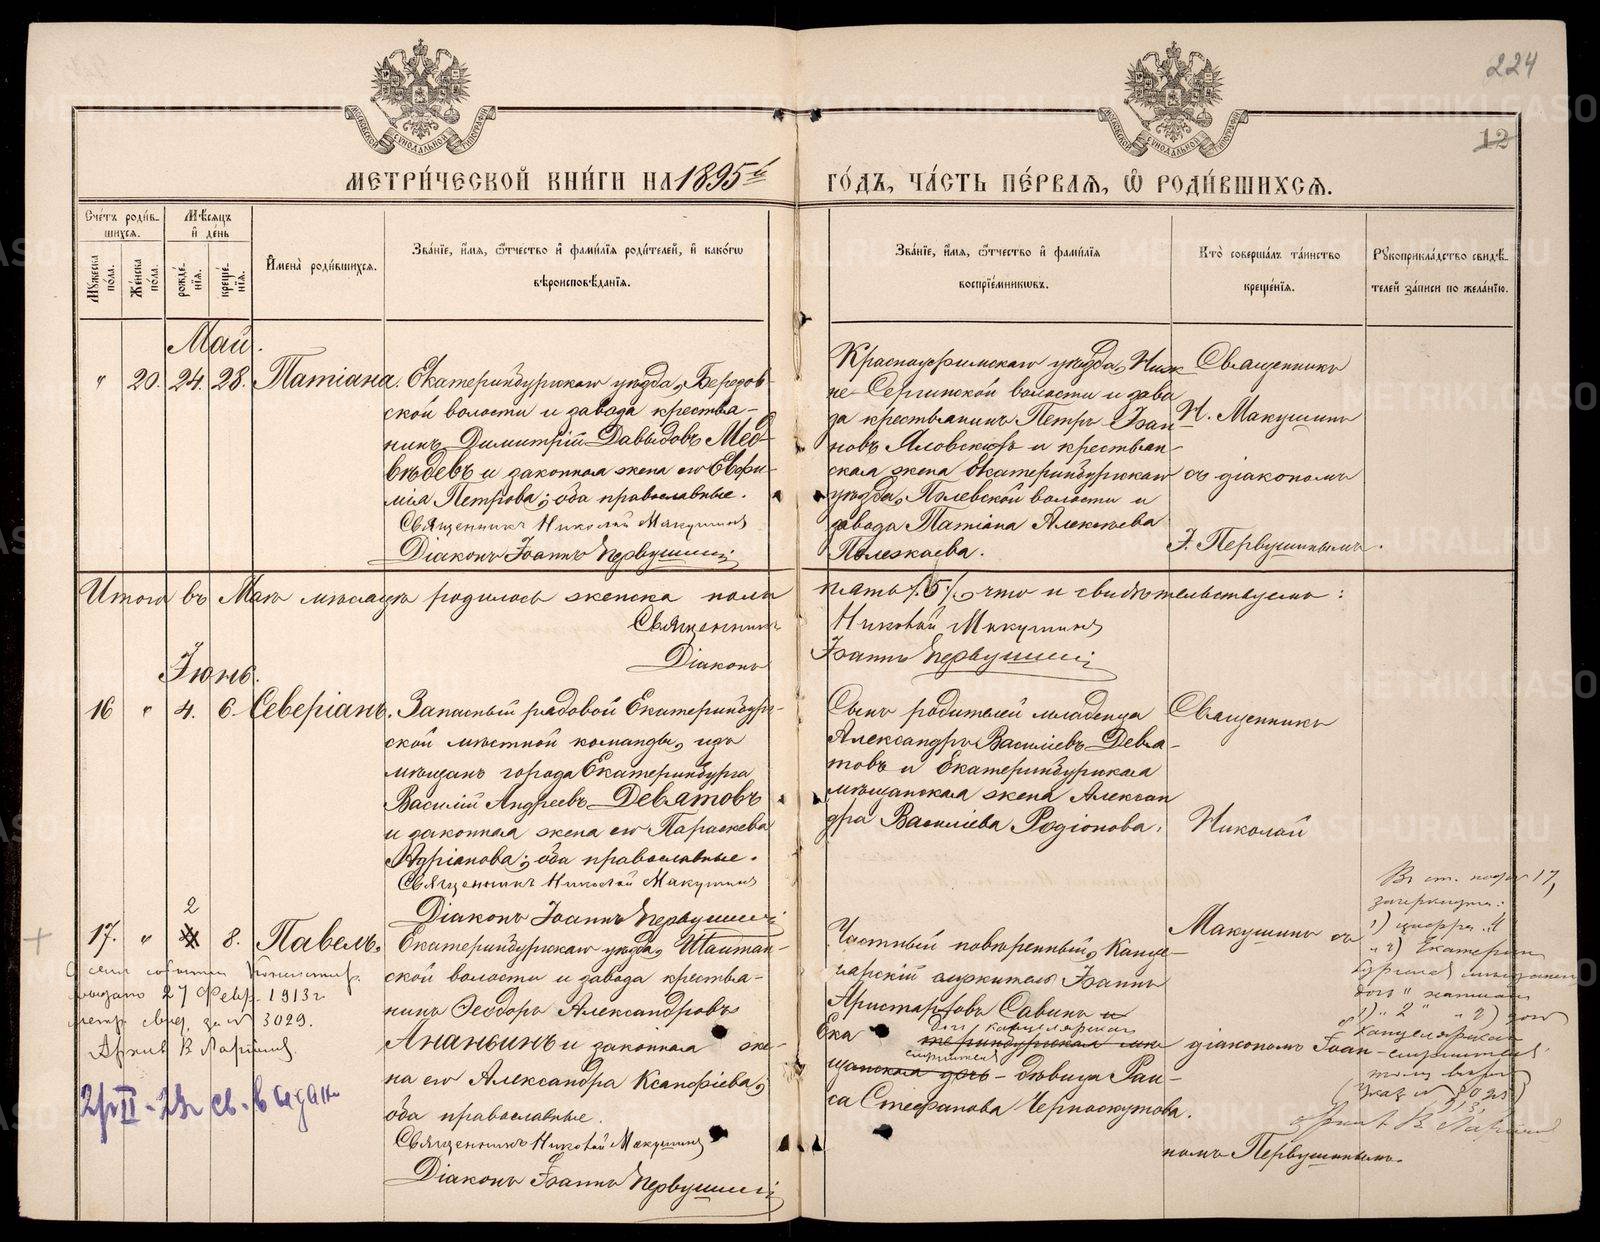 224
12
МОСКОВСКОЙ СѴНОДАЛЬНОЙ ТИПОГРАФІИ
МОСКОВСКОЙ СѴНОДАЛЬНОЙ ТИПОГРАФІИ
МЕТРИ́ЧЕСКОЙ КНИ́ГИ НА 1895й
ГО́ДЪ, ЧА́СТЬ ПЕ́РВАЯ, Ѡ҆ РОДИ́ВШИХСЯ.
Сче́тъ роди́в-
шихся.
Мѣ́сяцъ
и҆ де́нь
Му́жеска по́ла.
Же́нска по́ла.
рожде́-
нїя.
креще́-
нїя.
И҆мена̀ роди́вшихся.
Зва́нїе, и҆́мя, ѻ҆́тчество и҆ фами́лїя роди́телей, и҆ како́гѡ
вѣроисповѣ́данїя.
Зва́нїе, и҆́мя, ѻ҆́тчество и҆ фами́лїя
воспрїе́мникѡвъ.
Кто̀ соверша́лъ та́инство
креще́нїя.
Рꙋкоприкла́дство свидѣ́-
телей за́писи по жела́нїю.
Май.
" 20. 24. 28. Татіана.
Екатеринбургскаго уѣзда, Березов-
ской волости и завода крестья-
нинъ Димитрій Давыдовъ Мед-
вѣдевъ и законная жена его Евфи-
мія Петрова; оба православные.
Священникъ Николай Макушинъ
Діаконъ Іоаннъ Первушинъ
Красноуфимскаго уѣзда, Ниж
не-Сергинской волости и заво
да крестьянинъ Петръ Іван
новъ Яловскихъ и крестьян-
ская жена Екатеринбургскаго
уѣзда, Полевской волости и
завода Татіана Алексѣева
Полежаева.
Священникъ
Н. Макушинъ
съ діакономъ
І. Первушинымъ.
Итого въ Маѣ мѣсяцѣ родилось женска пола
пять /5/, что и свидѣтельствуемъ:
Священникъ
Николай Макушинъ
Діаконъ
Іоаннъ Первушинъ
Іюнь.
16 " 4. 6. Северіанъ.
Запасный рядовой Екатеринбург-
ской мѣстной команды, изъ
мѣщанъ города Екатеринбурга
Василій Андреевъ Девятовъ
и законная жена его Параскева
Адріанова; оба православные.
Священникъ Николай Макушинъ
Діаконъ Іоаннъ Первушинъ
Сынъ родителей младенца
Александръ Василіевъ Девя-
товъ и Екатеринбургская
мѣщанская жена Алексан
дра Василіева Родіонова.
Священникъ
Николай
2
17. " 4 8. Павелъ.
Екатеринбургскаго уѣзда, Шайтан-
ской волости и завода крестья-
нинъ Ѳеодоръ Александровъ
Ананьинъ и законная же-
на его Александра Ксанфіева;
оба православные.
Священникъ Николай Макушинъ
Діаконъ Іоаннъ Первушинъ
Частный повѣренный, Канце-
лярскій служитель Іоаннъ
Аристарховъ Савинъ и
дочь канцелярскаго
Ека теринбургская мѣ
служителя
щанская дочь - дѣвица Раи-
са Стефанова Черноскутова.
Макушинъ съ
діакономъ Іоан-
номъ Первушинымъ.
О семъ событіи
выдано 27 Февр. 1913 г
метр. свид. за № 3029.
2/II - 23г св-в выдано
Въ ст. подъ № 17,
зачеркнуто:
1) цифра „4